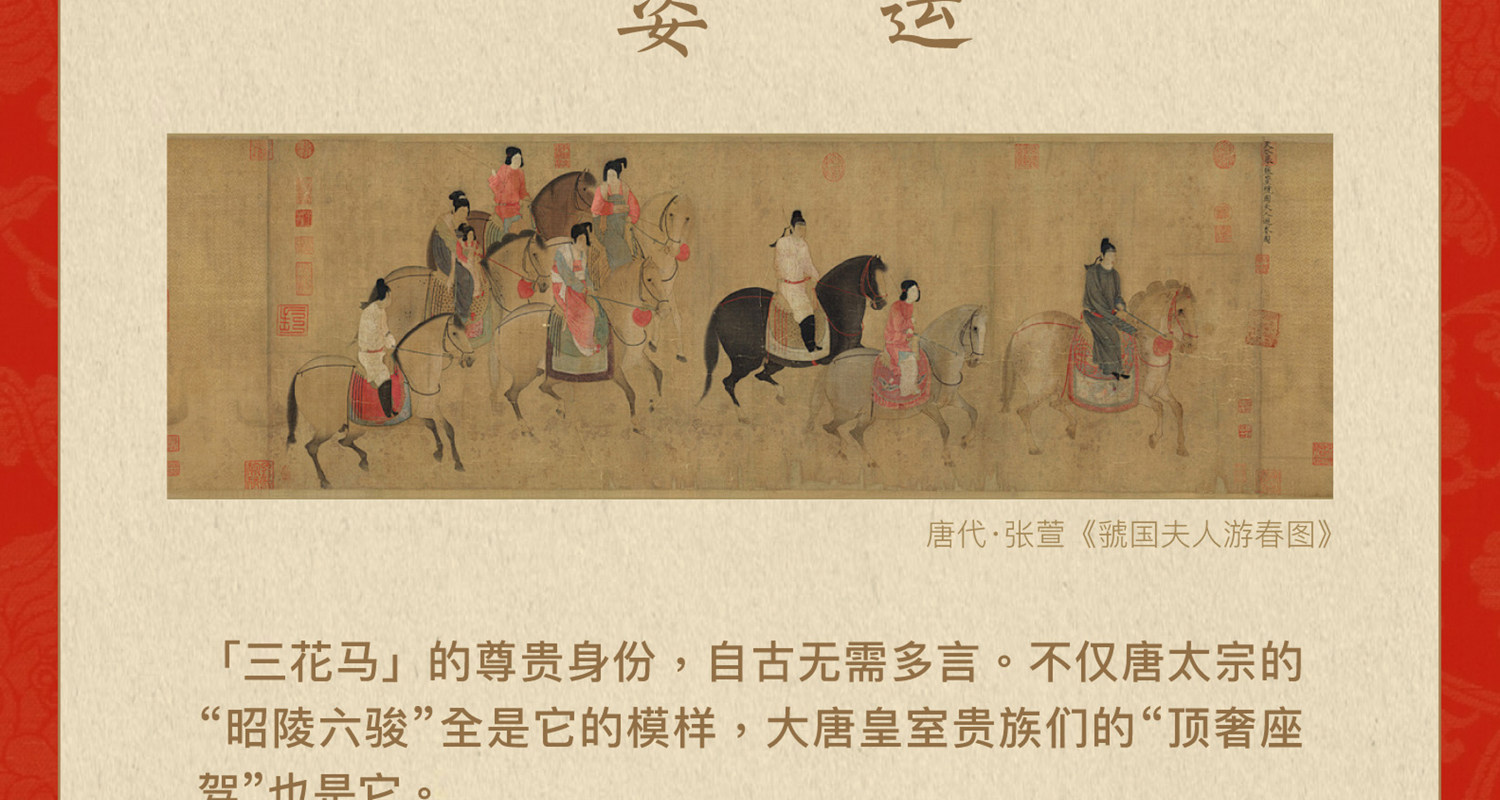 姿 运
唐代·张萱《虢国夫人游春图》
「三花马」的尊贵身份，自古无需多言。不仅唐太宗的
“昭陵六骏”全是它的模样，大唐皇室贵族们的“顶奢座
驾”也是它。